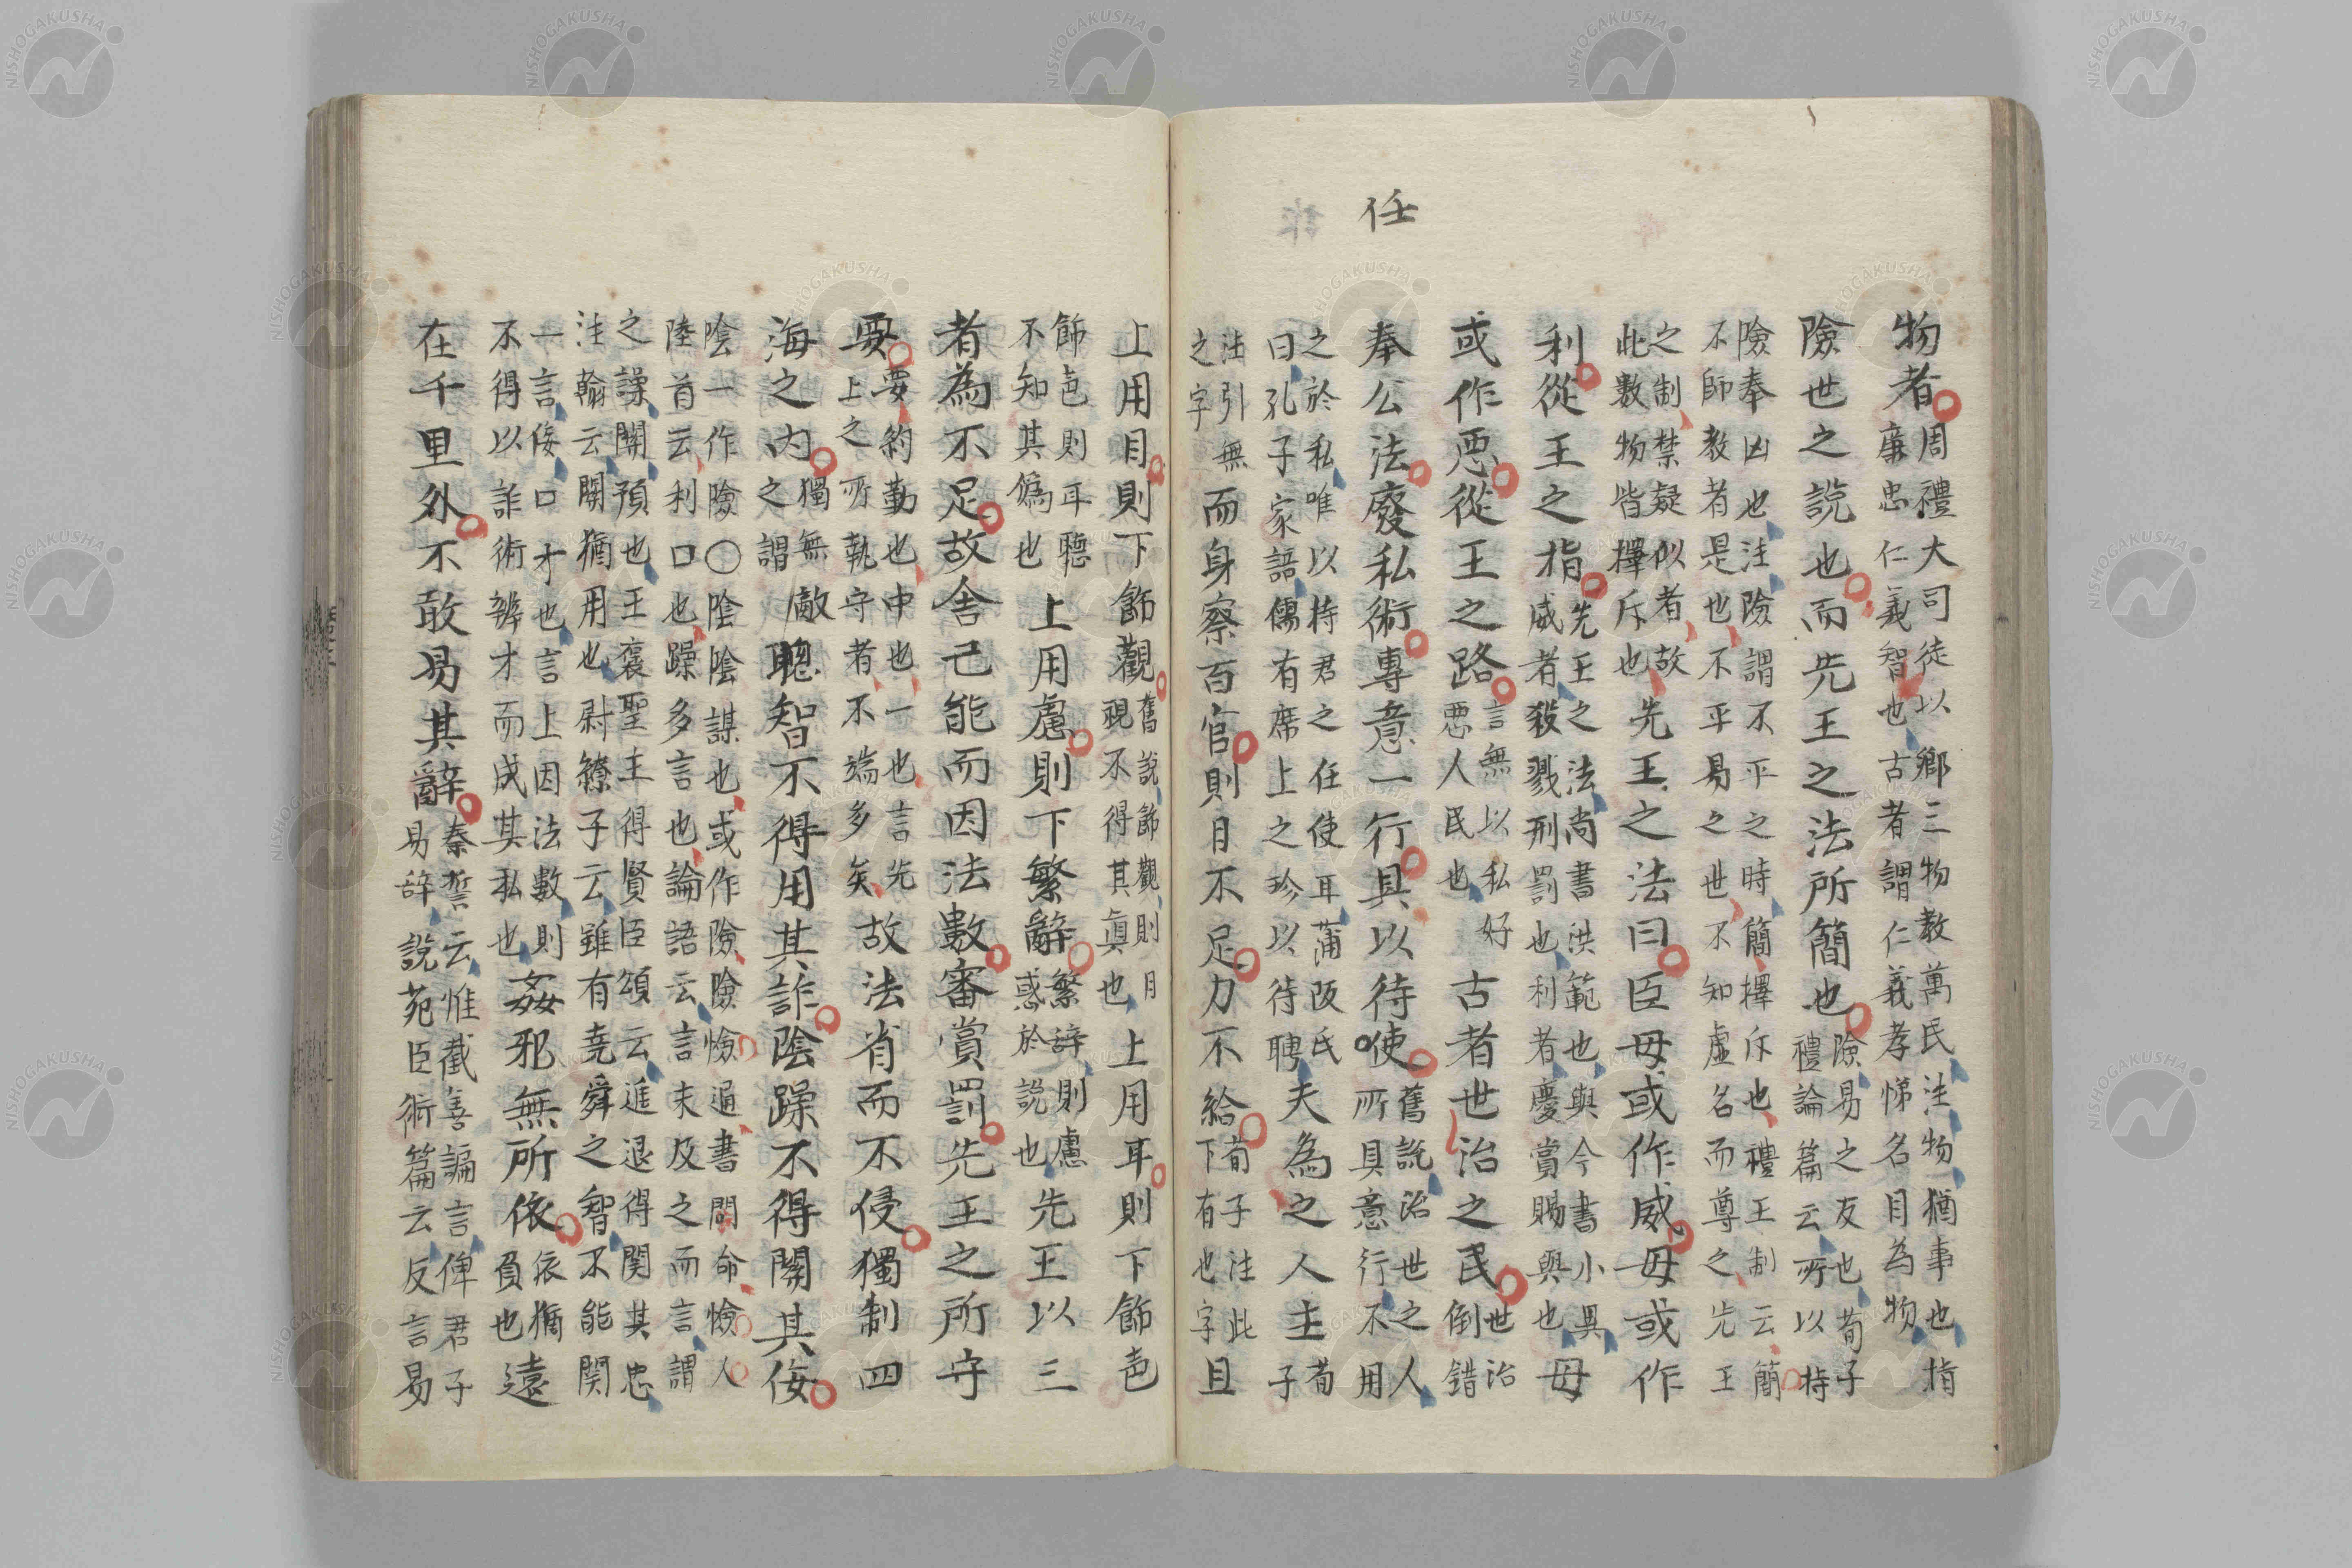 任
物者
周禮大司徒以郷三物教萬民注物猶事也指
廉忠仁義智也古者謂仁義孝悌名目為物
險世之說也而先王之法所簡也
險易之友也荀子
禮論篇云所以持
險奉凶也注險謂不平之時簡擇斥也禮王制云簡
不師教者是也不平易之世不知虛名而尊之先王
之制禁疑似者故
此數物皆擇斥也
先王之法曰臣毋或作威毋或作
利從王之指
先王之法尚書洪範也與今書小異
威者殺戮刑罰也利者慶賞賜與也
毋
或作悪從王之路
言無以私好
悪人民也
古者世治之民
世治
倒錯
奉公法廢私術專意一行具以待使
舊説治世之人
所具意行不用
之於私唯以持君之任使耳蒲阪氏
曰孔子家語儒有席上之珍以待聘
夫為之人主
荀
子
法引無
之字
而身察百官則日不足力不給
荀子注此
下有也字
且
上用目則下飾觀
舊說飾觀則目
視不得其眞也
上用耳則下飾色
飾色則耳聽
不知其僞也
上用慮則下繁辭
繁辞則慮
惑於說也
先王以三
者為不足故舍己能而因法數審賞罰先王之所守
要
要約勤也中也一也言先
上之所執守者不端多矣
故法省而不侵獨制四
海之内
獨無敵
之謂
聰智不得用其詐陰躁不得關其佞
陰一作險〇陰陰謀也或作險險憸通書冏命憸人
陸首云利口也躁多言也論語云言未及之而言謂
之譟關預也王褒聖主得賢臣頌云進退得関其忠
注翰云関猶用也尉繚子云雖有堯舜之智不能関
一言佞口才也言上因法數則
不得以詐術辨才而成其私也
姦邪無所依
依猶
負也
遠
在千里外不敢易其辭
秦誓云惟截善諞言俾君子
易辞說苑臣術篇云反言易